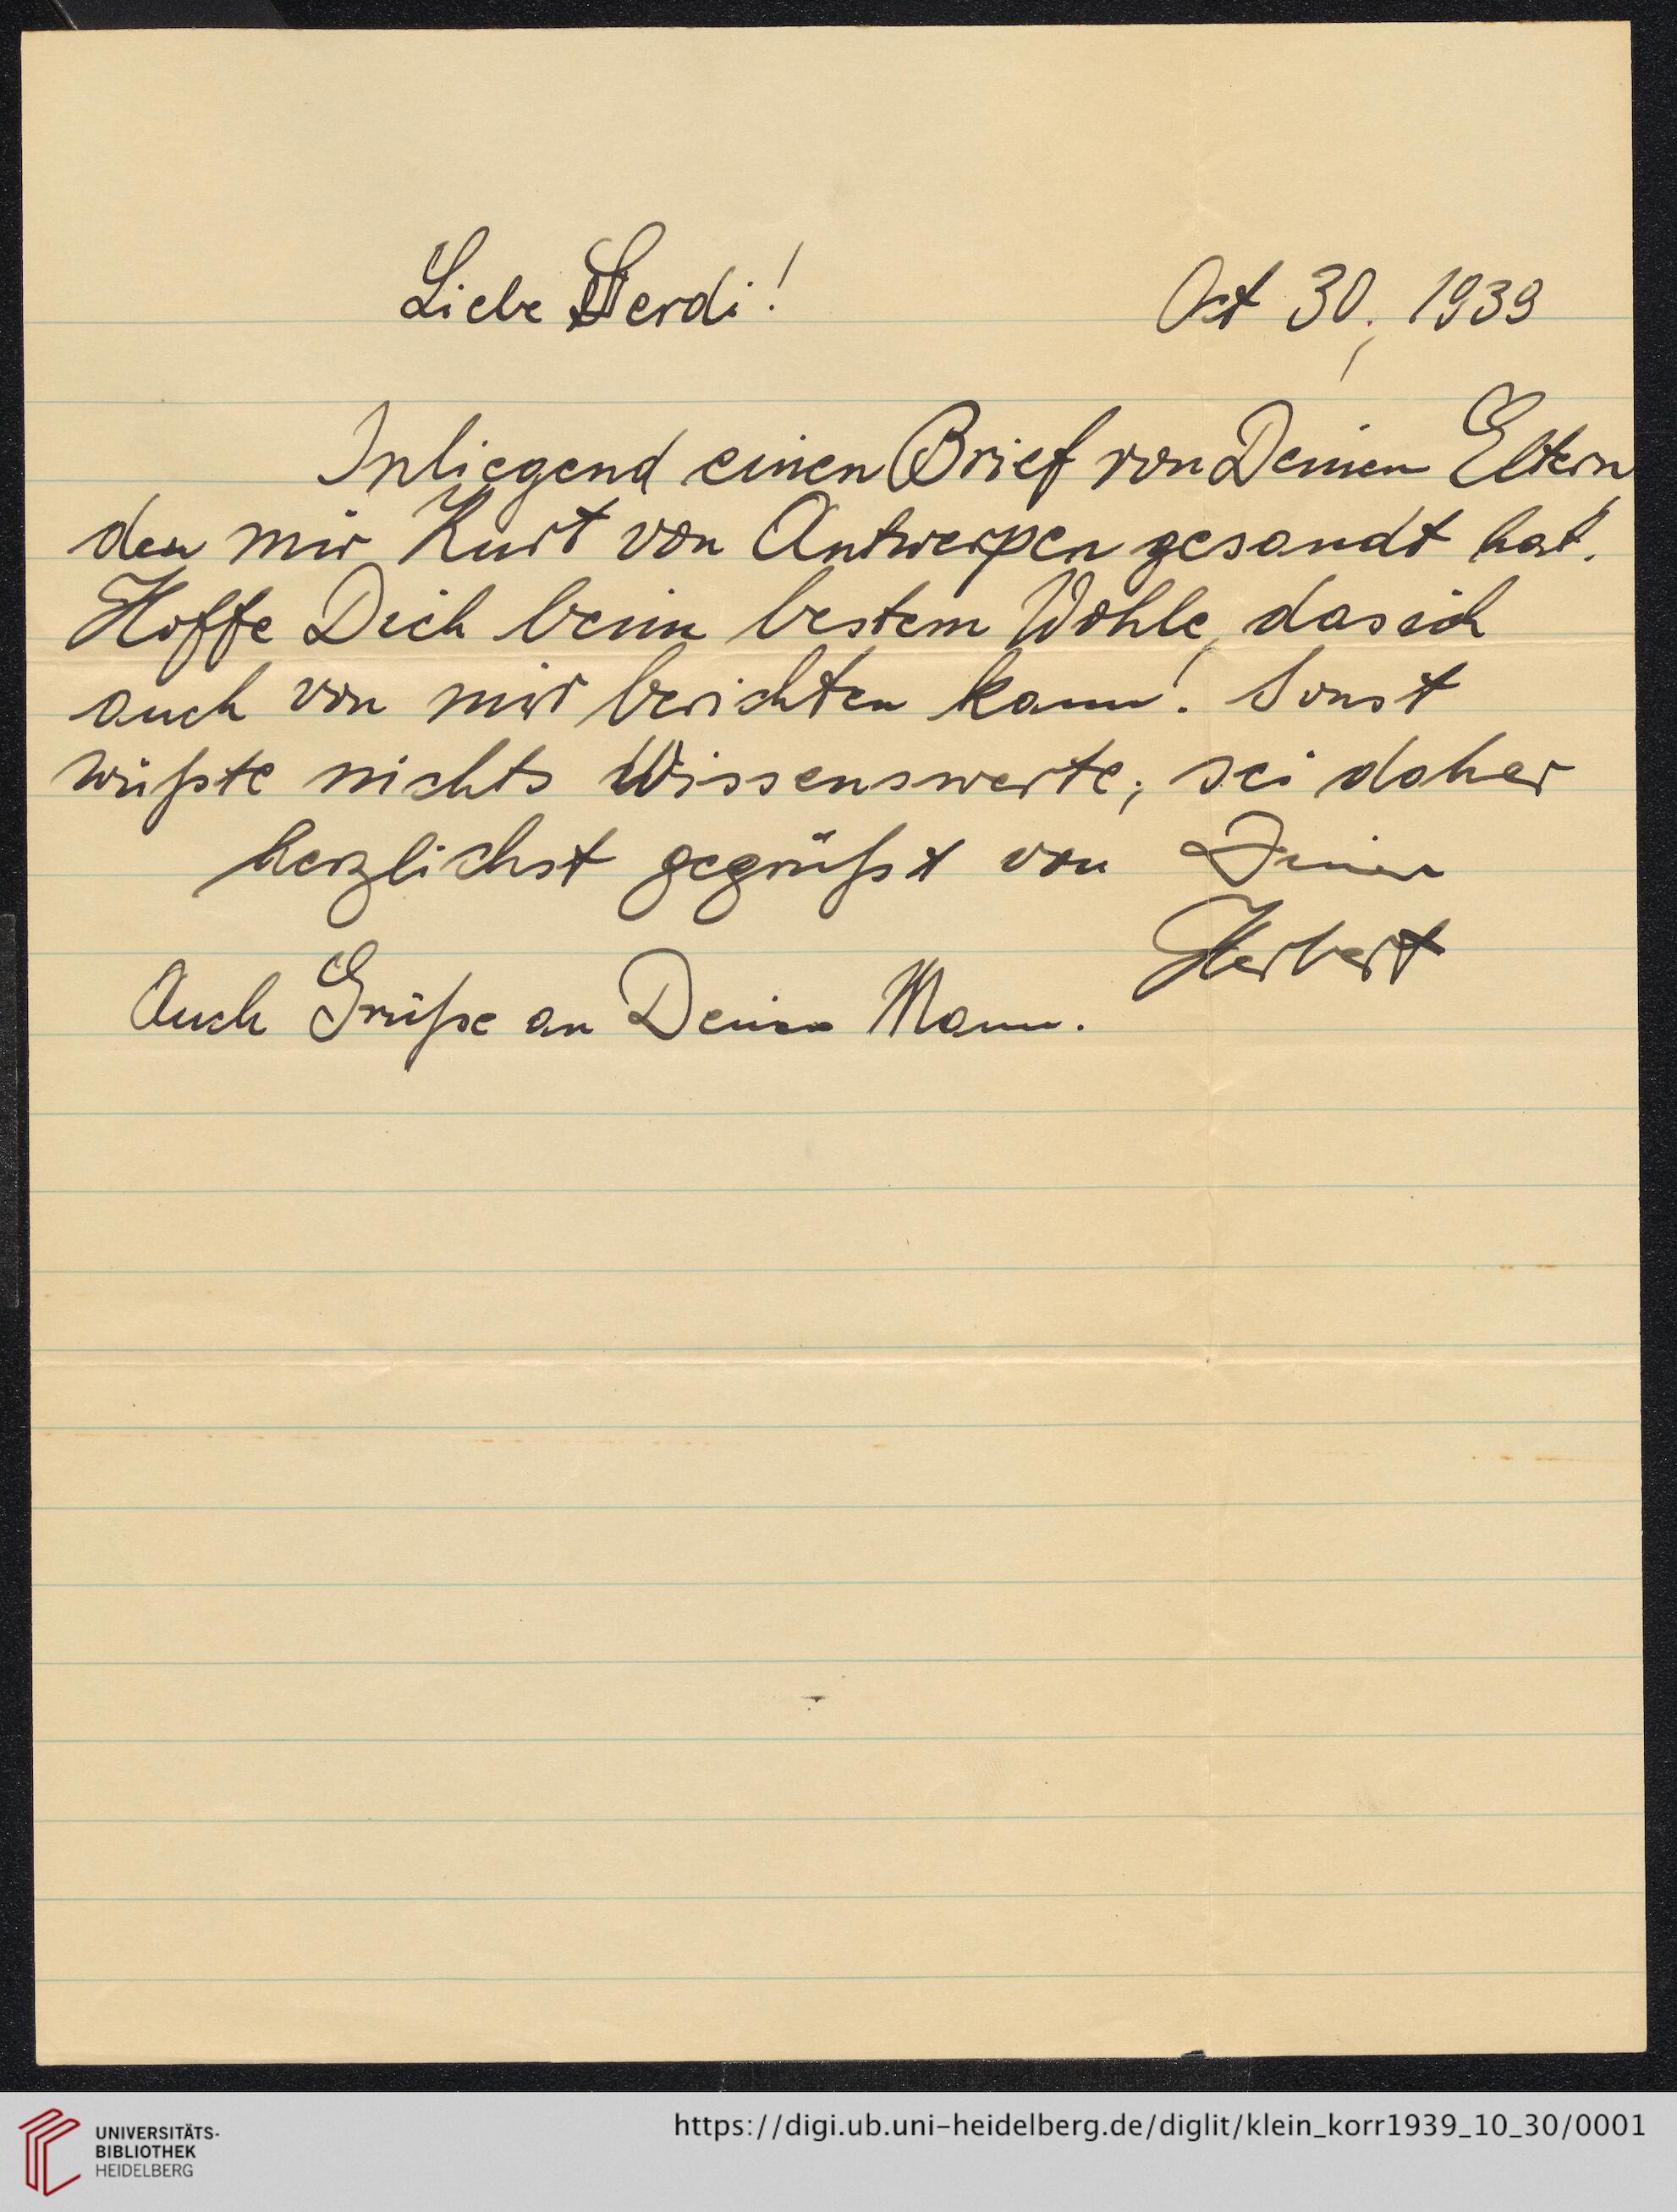 Liebe Gerdi!
Oct 30, 1939
Inliegend einen Brief von Deinen Eltern
den mir Kurt von Antwerpen gesandt hat.
Hoffe Dich beim bestem Wohle, das ich
auch von mir berichten kann! Sonst
wüßte nichts Wissenswerte; sei daher
herzlichst gegrüßt von Deinem
Herbert
Auch Grüße an Deinen Mann.
UNIVERSITÄTS-
BIBLIOTHEK
HEIDELBERG
https://digi.ub.uni-heidelberg.de/diglit/klein_korr1939_10_30/0001